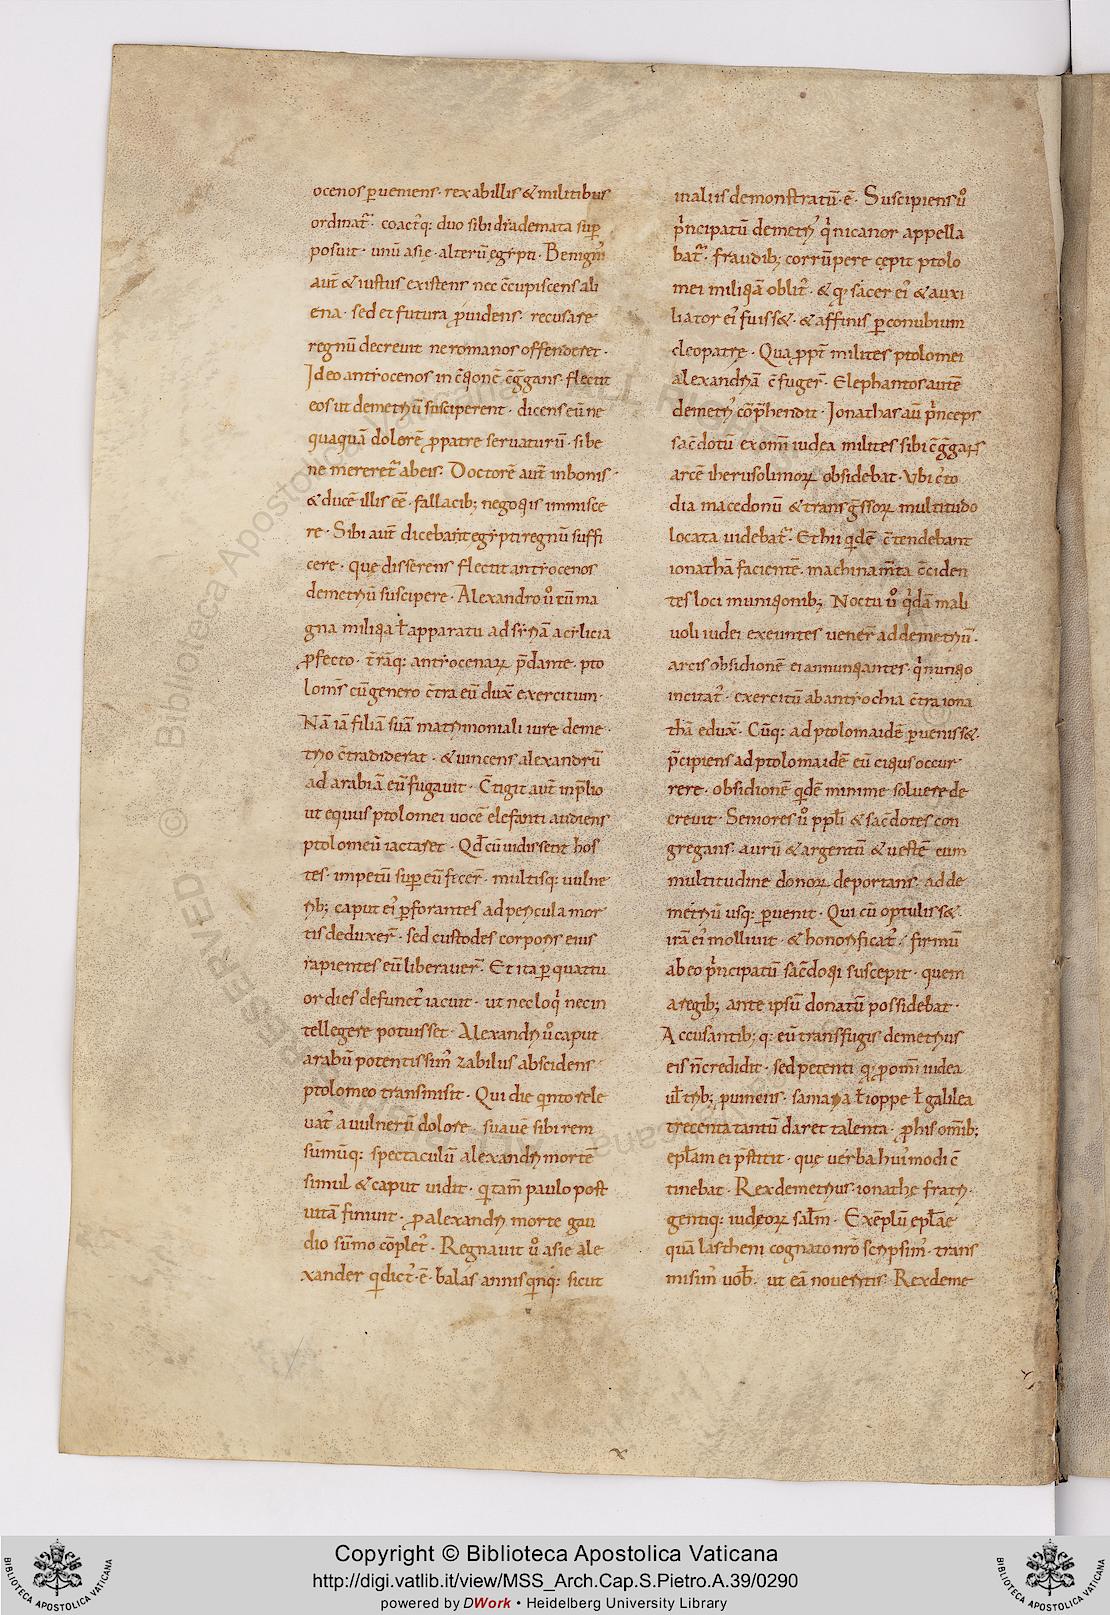 ocenos ꝑueniens · rex ab illis & militibus
ordinat᷑ · coactꝰq: duo sibi diademata suꝑ
posuit · unū asię · alterū egypti · Benignꝰ
aut̄ & iustus existens nec c̄cupiscens ali
ena · sed et futura ꝓuidens · recusare
regnū decreuit ne romanos offenderet ·
Ideo antiocenos in c̄tionē c̄g̃gans · flectit
eos ut demetriū susciperent · dicens eū ne
quaquā dolorē ꝓ patre seruaturū · si be
ne mereret᷑ ab eis · Doctorē aut̄ in bonis ·
& ducē illis eē · fallacib; negotiis inmisce
re · Sibi aut̄ dicebat egypti regnū suffi
cere · quę disserens flectit antiocenos
demetriū suscipere · Alexandro u̾ cū ma
gna militia ł apparatu ad syriā a cilicia
ꝓfecto · t̄rāq: antiocenaꝝ p̄dante · pto
lomeꝰ cū genero c̄tra eū dux̄ exercitum ·
Nā iā filiā suā matrimoniali iure deme
trio c̄tradiderat · & uincens alexandrū
ad arabiā eū fugauit · C̄tigit aut̄ in p̄lio
ut equus ptolomei uocē elefanti audiens
ptolomeū iactaret · Qd̄ cū uidissent hos
tes · impetū suꝑ eū fecer̄ · multisq: uulne
rib; caput eiꝰ ꝑforantes ad pericula mor
tis deduxer̄ · sed custodes corporis eius
rapientes eū liberauer̄ · Et ita ꝑ quattu
or dies defunctꝰ iacuit · ut nec loqi nec in
tellegere potuisset · Alexandri u̾ caput
arabū potentissimꝰ zabilus abscidens ·
ptolomeo transmisit · Qui die quinto rele
uatꝰ a uulnerū dolore · suauē sibi rem
sūmūq: spectaculū alexandri mortē
simul & caput uidit · qi tam̄ paulo post
uitā finiuit · ꝓ alexandri morte gau
dio sūmo cōpletꝰ · Regnauit u̾ asię ale
xander qi dictꝰ · ē · balas annis qinq: sicut
in aliis demonstratū · ē · Suscipiens u̾
p̓ncipatū demetriꝰ q̓ nicanor appella
bat᷑ · fraudib; corrūpere cępit ptolo
mei militiā oblitꝰ · & qꝫ sacer eiꝰ & auxi
liator eiꝰ fuiss& · & affinis ꝑ conubium
cleopatrę · Qua ꝓpt̓ milites ptolomei
alexandriā c̄fuger̄ · Elephantos autē
demetriꝰ cōp̄hendit · Ionathas aū p̓nceps
sac̄dotū ex omī iudea milites sibi c̄g̃gans
arcē iherusolimoꝝ obsidebat · Vbi c̓to
dia macedonū & transg̃ssoꝝ multitudo
locata uidebat᷑ · Et hii qidē c̄tendebant
ionathā facientē · machinam̄ta c̄ciden
tes loci munitionib; Noctu u̾ q̓dā mali
uoli iudei exeuntes uener̄ ad demetriū ·
arcis obsidionē ei annuntiantes · q̓ nuntio
incitatꝰ · exercitū ab antiochia c̄tra iona
thā edux̄ · Cūq: ad ptolomaidē ꝑueniss& ·
p̄cipiens ad ptolomaidē eū citius occur
rere · obsidionē qidē minime soluere de
creuit · Seniores u̾ ppłi & sac̄dotes con
gregans · aurū & argentū & uestē cum
multitudine donoꝝ deportans · ad de
metriū usq: ꝑuenit · Qui cū optuliss& ·
irā eiꝰ molliuit · & honorificatꝰ · firmū
ab eo p̓ncipatū sac̄dotii suscepit · quem
a regib; ante ipsū donatū possidebat ·
Accusantib; q: eū transfugis demetrius
eis ñ credidit · sed petenti qꝫ ꝓ omī iudea
uł trib; ꝓuinciis · samaria ł ioppe ł galilea
trecenta tantū daret talenta · ꝓ his omīb;
epłam ei p̄stitit · quę uerba huiꝰmodi c̄
tinebat · Rex demetrius · ionathę fratri ·
gentiq: iudeoꝝ sałm · Exēplū epłae
quā lastheni cognato nr̄o scripsimꝰ · trans
misimꝰ uob̄ · ut eā noueritis · Rex deme
Copyright © Biblioteca Apostolica Vaticana
http://digi.vatlib.it/view/MSS_Arch.Cap.S.Pietro.A.39/0290
powered by DWork • Heidelberg University Library
BIBLIOTECA APOSTOLICA VATICANA
BIBLIOTECA APOSTOLICA VATICANA